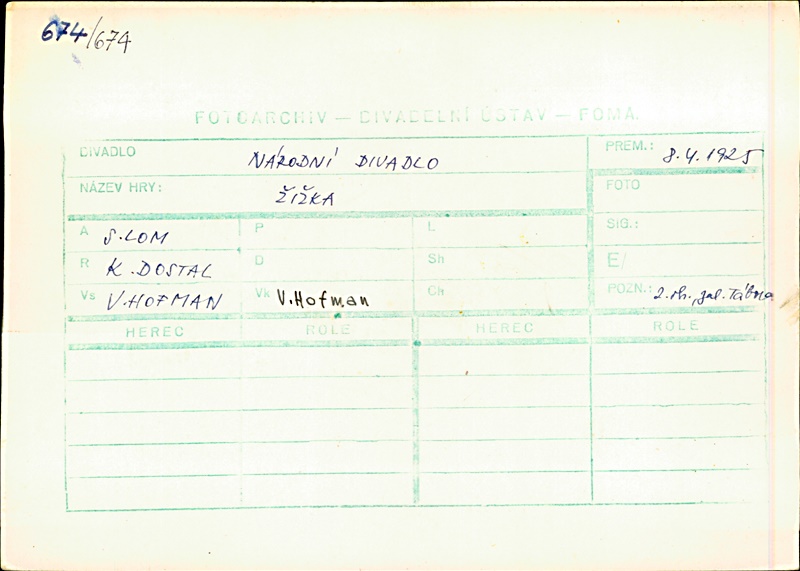 674/674
FOTOARCHIV — DIVADELNÍ ÚSTAV — FOMA
DIVADLO NÁRODNÍ DIVADLO PREM.: 8.4.1925
NÁZEV HRY: ŽIŽKA FOTO
A S.LOM P L SIG.:
R K.DOSTAL D Sh E/
Vs V.HOFMAN Vk V.Hofman Ch POZN.: 2.
HEREC ROLE HEREC ROLE